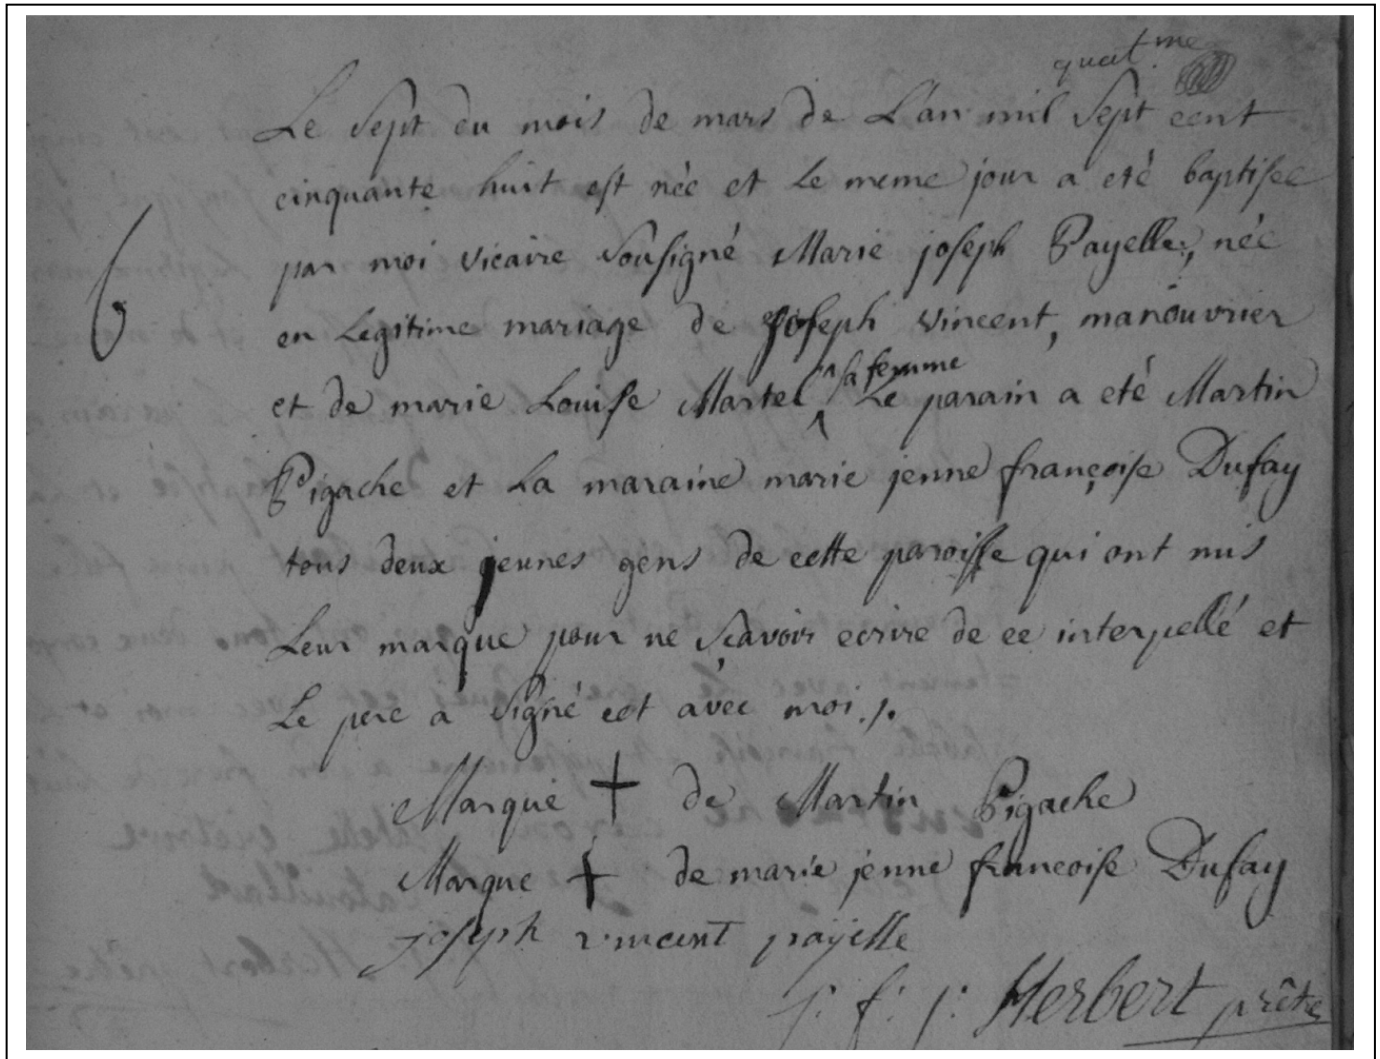 quat.me
Le Sept du mois de mars de L'an mil Sept cent
cinquante huit est née et le meme jour a eté baptisée
par moi vicaire Sousigné Marie joseph Payelle, née
6
en Legitime mariage de joseph vincent, manouvrier
et de marie Louise Martel sa femme Le parain a eté Martin
Pigache et La maraine marie jenne françoise Dufay
tous deux jeunes gens de cette paroisse qui ont mis
Leur marque pour ne sçavoir ecrire de ce interpellé et
Le pere a signé avec moi ./.
Marque + de Martin Pigache
Marque + de marie jenne francoise Dufay
joseph vincent payelle
j: f: j: Herbert prêtre